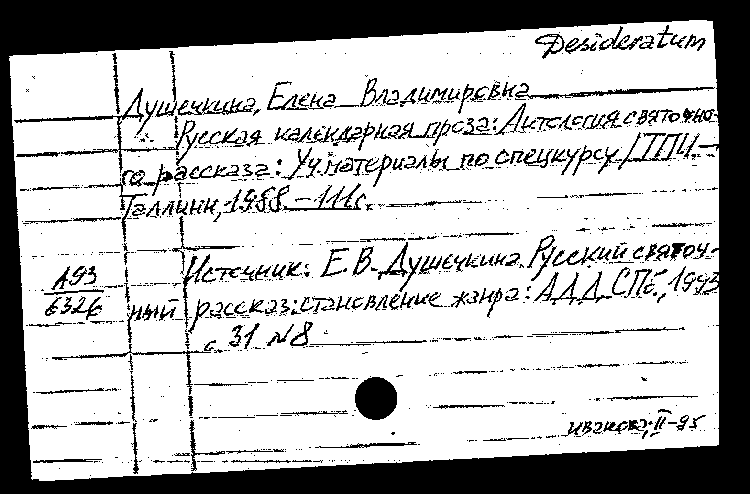 Desideratum
Душечкина, Елена Владимировна
Русская календарная проза: Антология святочно-
го рассказа: Уч. материалы по спецкурсу / ТПИ. –
Таллинн, 1988. – 111 с.
Источник: Е.В. Душечкина. Русский святоч-
А93
6326
ный рассказ: становление жанра: АДД, СПб., 1993
с 31 №8
иванова, II-95